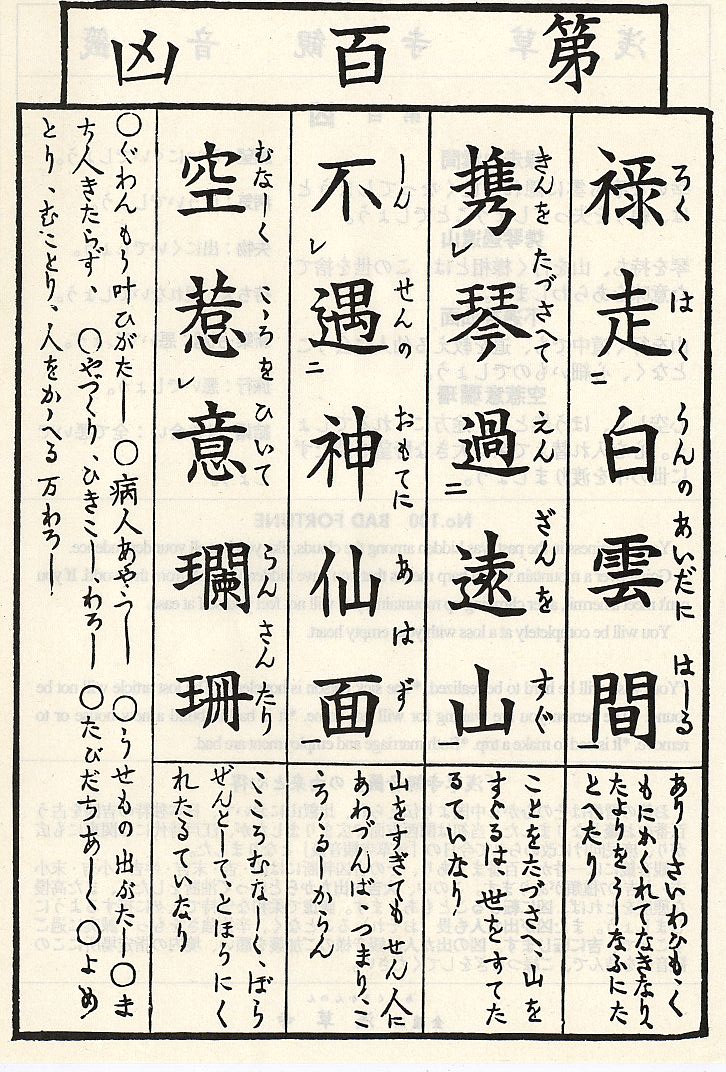 第百凶
禄走白雲間
ろく はく うんの あいだに はしる
携レ琴過二遠山一
きんを たづさへて えん ざんを すぐ
不レ遇二神仙面一
しんせんの おもてに あはず
空惹レ意瓓珊
むなしく こゝろをひいて らんさんたり
ありしさいわひもくく
もにかくれてなきなり、
たよりをうしなふにた
とへたり
ことをたづさへ、山を
すぐるは、世をすてた
るていなり、
山をすぎてもせん人に
あわづんば、つまりこ
ころうかるべし
こころむなしく、ぼう
ぜんとしてとほうにく
れたるてしなり
○ぐわんもう叶ひがたし ○病人あやうし ○うせもの出がたし ○ま
ち人きたらず、○やづくり、ひきこしわろし ○たびだちあしく ○よめ
とり、むことり、人をかゝへる万わろし